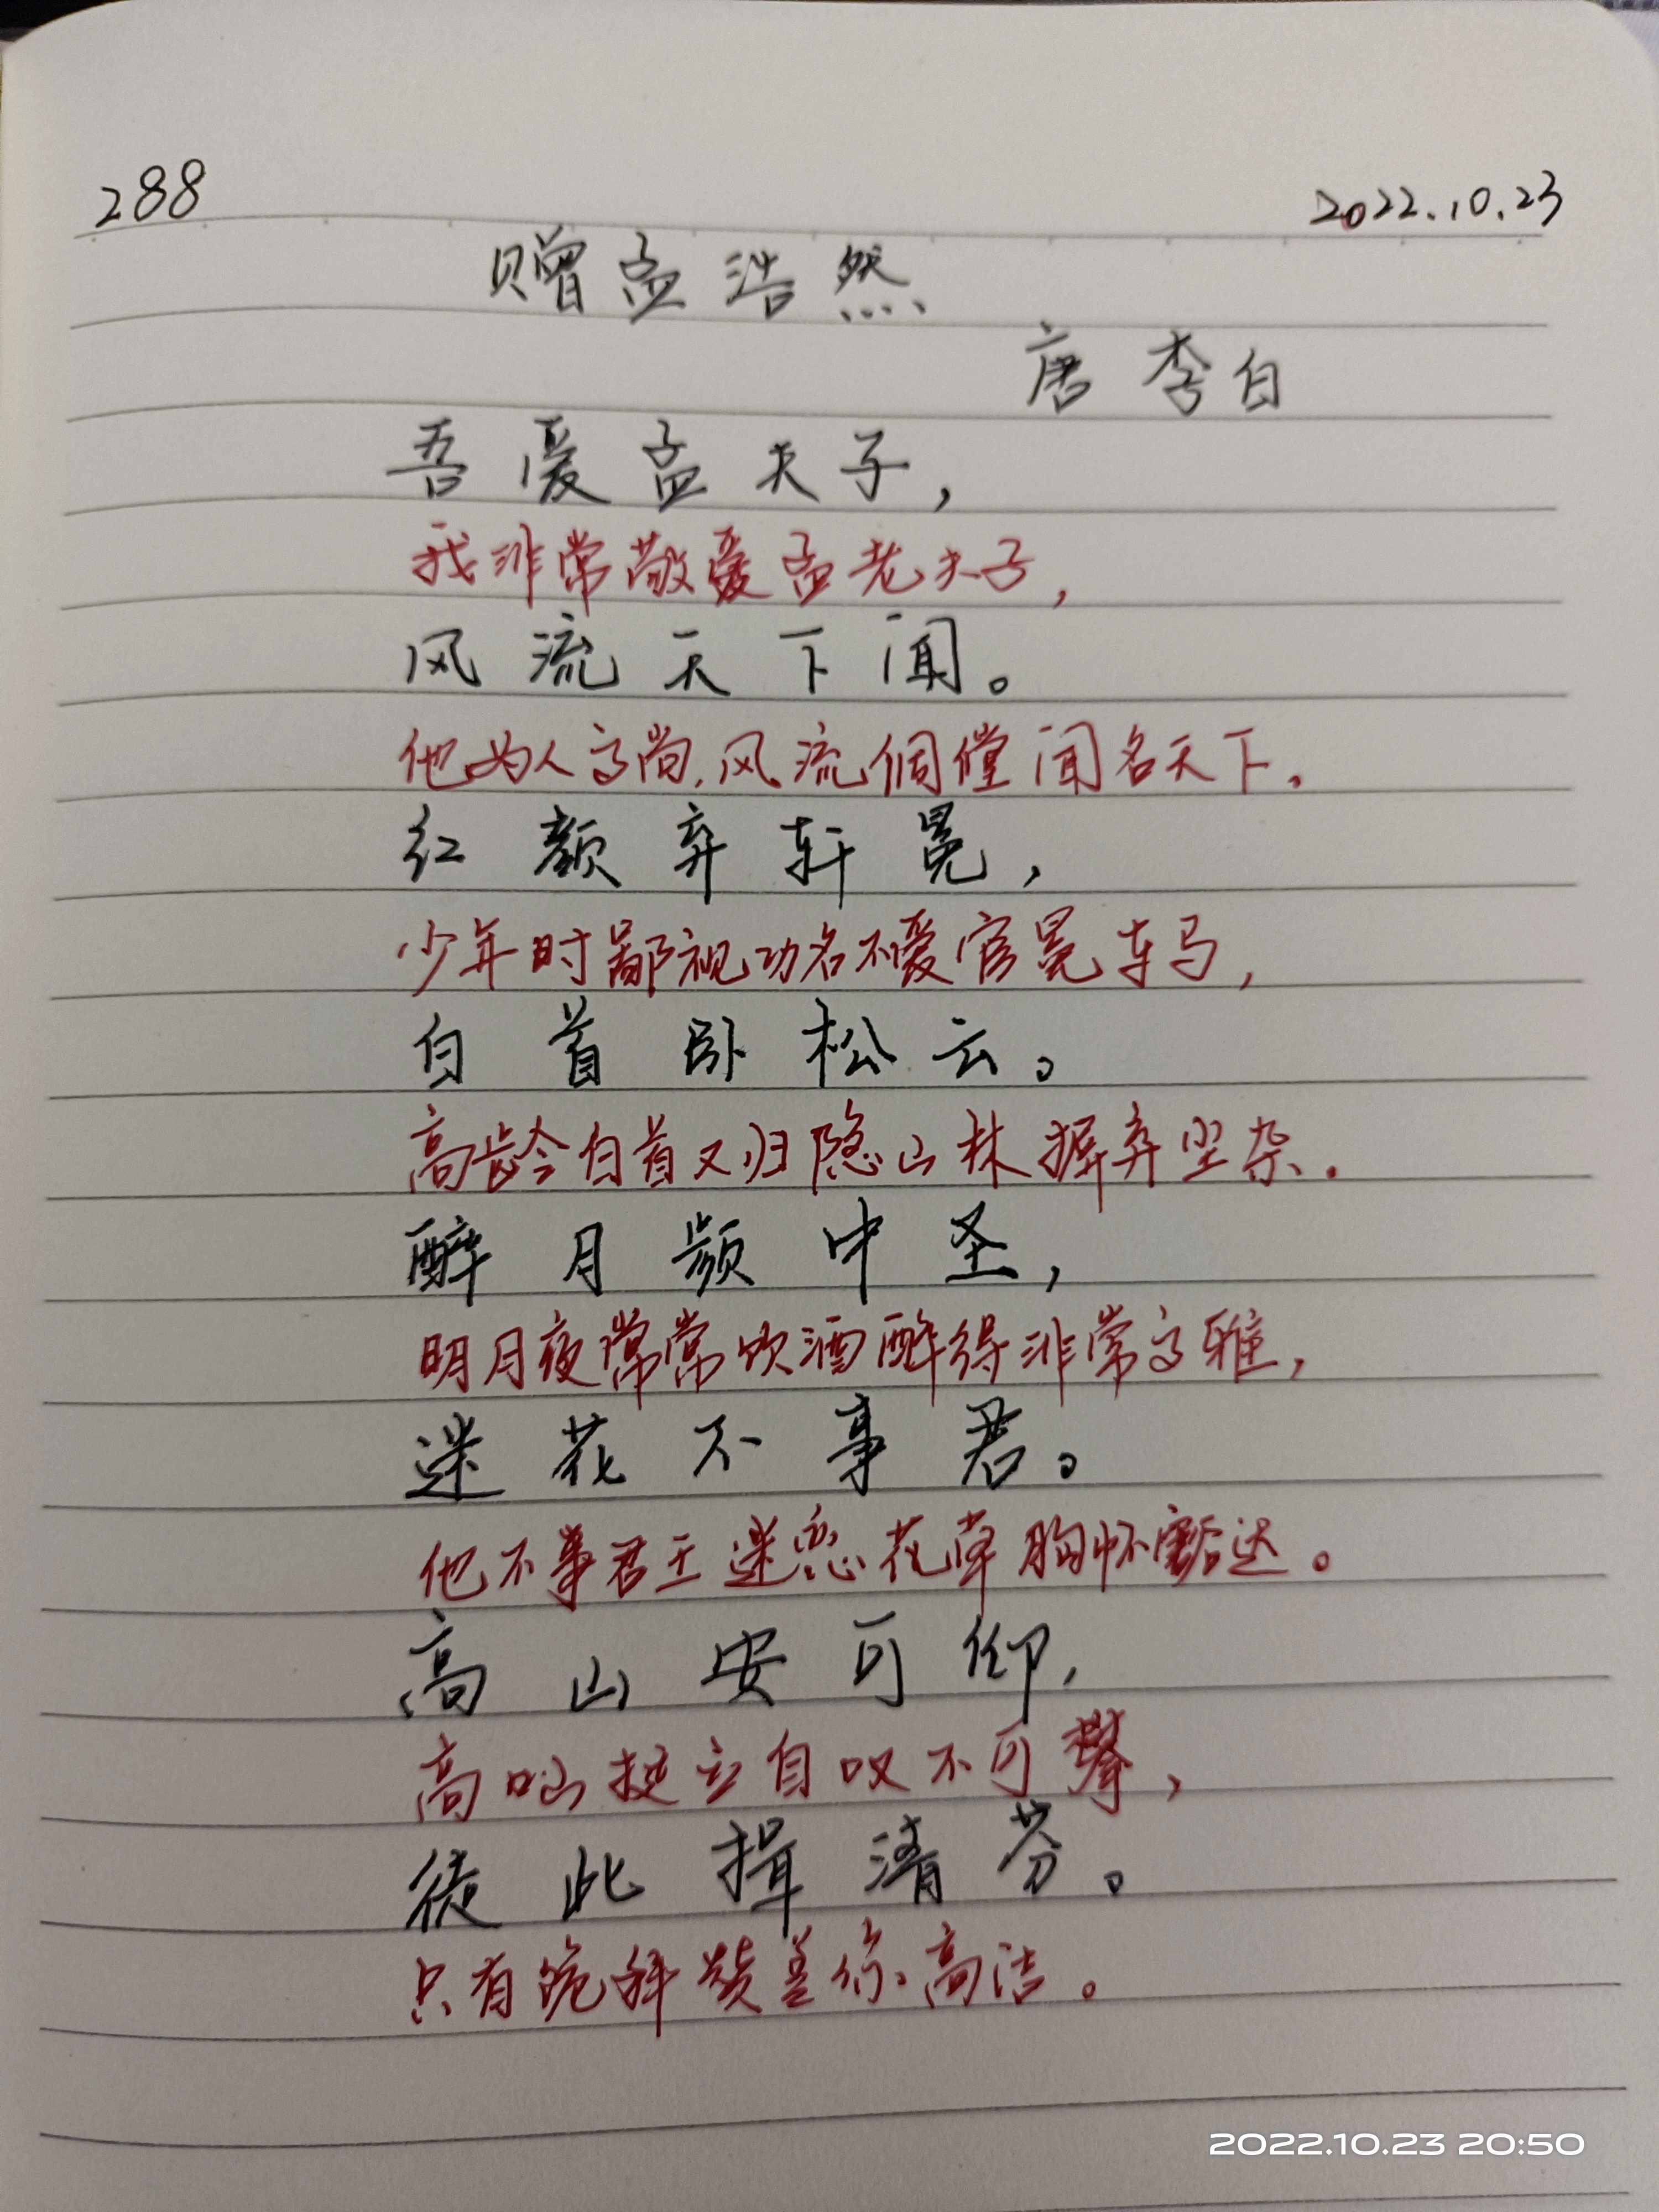 288
2022.10.23
赠孟浩然
唐 李白
吾爱孟夫子,
我非常敬爱孟老夫子,
风流天下闻。
他为人高尚,风流倜傥闻名天下。
红颜弃轩冕,
少年时鄙视功名不爱官冕车马,
白首卧松云。
高龄白首又归隐山林摒弃尘杂。
醉月频中圣,
明月夜常常饮酒醉得非常高雅,
迷花不事君。
他不事君王迷恋花草胸怀豁达。
高山安可仰,
高山挺立自叹不可攀,
徒此揖清芬。
只有跪拜赞美你高洁。
2022.10.23 20:50